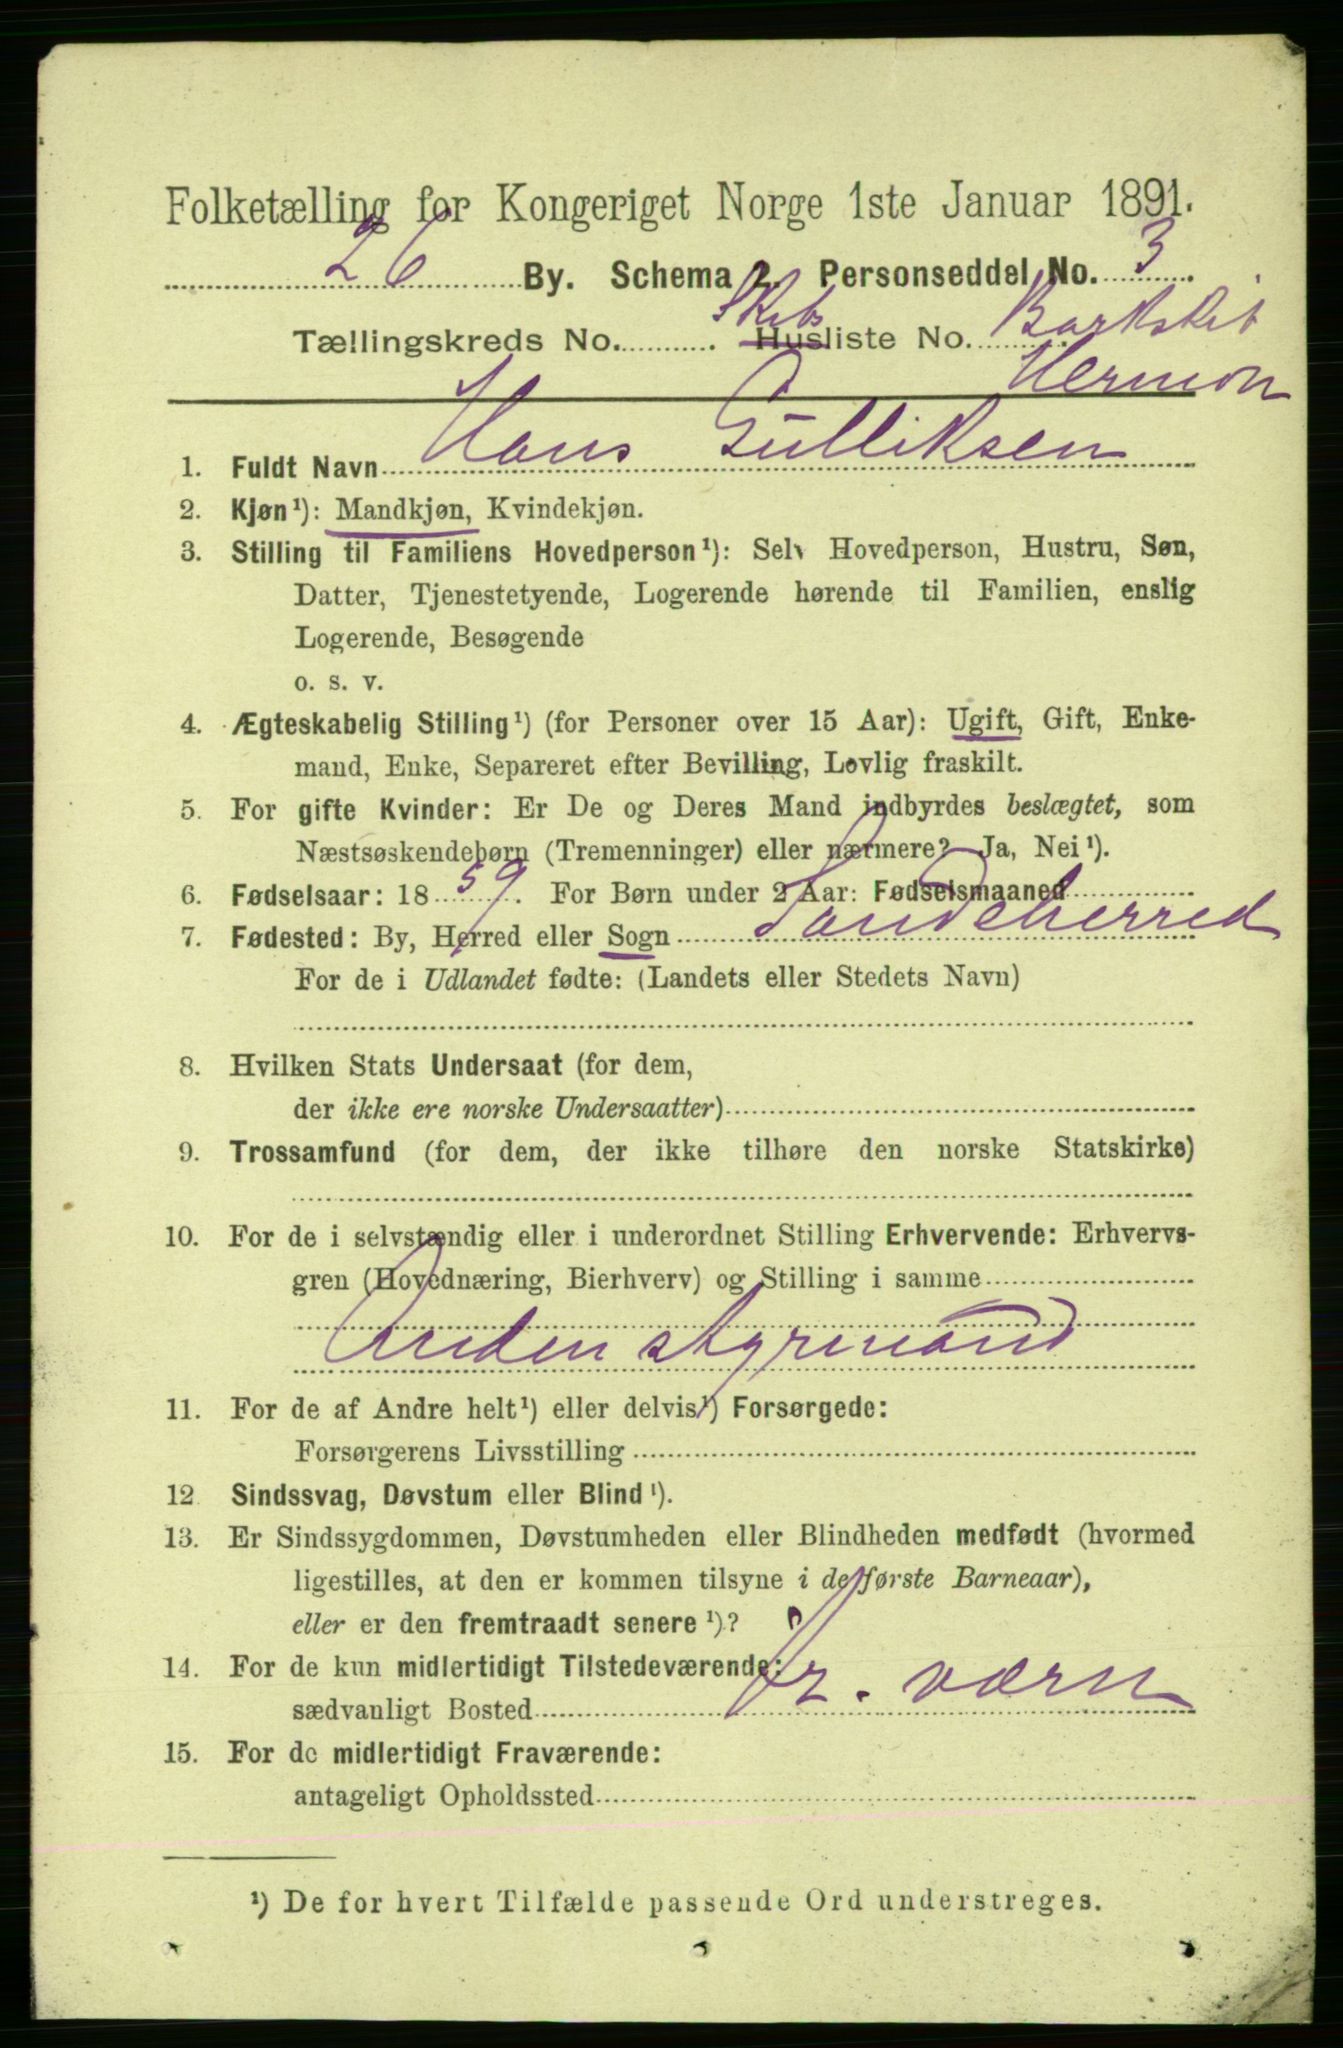 Folketælling for Kongeriget Norge 1ste Januar 1891.
26 By. Schema 2. Personseddel No. 3
Tællingskreds No. Skibs Husliste No. Barkskib
Hermon
Hans Gulliksen
1. Fuldt Navn
2. Kjøn¹): Mandkjøn, Kvindekjøn.
3. Stilling til Familiens Hovedperson¹): Selv Hovedperson, Hustru, Søn,
Datter, Tjenestetyende, Logerende hørende til Familien, enslig
Logerende, Besøgende
o. s. v.
4. Ægteskabelig Stilling¹) (for Personer over 15 Aar): Ugift, Gift, Enke-
mand, Enke, Separeret efter Bevilling, Lovlig fraskilt.
5. For gifte Kvinder: Er De og Deres Mand indbyrdes beslægtet, som
Næstsøskendebørn (Tremenninger) eller nærmere? Ja, Nei¹).
6. Fødselsaar: 1859. For Børn under 2 Aar: Fødselsmaaned
7. Fødested: By, Herred eller Sogn Sandeherred
For de i Udlandet fødte: (Landets eller Stedets Navn)
8. Hvilken Stats Undersaat (for dem,
der ikke ere norske Undersaatter)
9. Trossamfund (for dem, der ikke tilhøre den norske Statskirke)
10. For de i selvstændig eller i underordnet Stilling Erhvervende: Erhvervs-
gren (Hovednæring, Bierhverv) og Stilling i samme
Anden styrmand
11. For de af Andre helt¹) eller delvis¹) Forsørgede:
Forsørgerens Livsstilling
12 Sindssvag, Døvstum eller Blind¹).
13. Er Sindssygdommen, Døvstumheden eller Blindheden medfødt (hvormed
ligestilles, at den er kommen tilsyne i de første Barneaar),
eller er den fremtraadt senere¹)?
14. For de kun midlertidigt Tilstedeværende:
sædvanligt Bosted Fr. værn
15. For de midlertidigt Fraværende:
antageligt Opholdssted
¹) De for hvert Tilfælde passende Ord understreges.